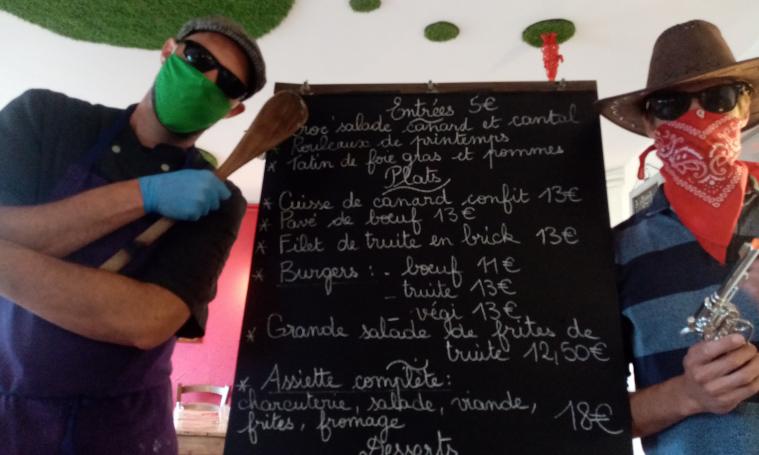 Entrées 5€
Croc' salade canard et cantal
* Rouleaux de printemps
* Tatin de foie gras et pommes
Plats
* Cuisse de canard confit 13€
* Pavé de bœuf 13€
* Filet de truite en brick 13€
* Burgers : - bœuf 11€
- truite 13€
- végi 13€
* Grande salade de frites de
truite 12,50€
* Assiette complète :
charcuterie, salade, viande,
frites, fromage 18€
Desserts